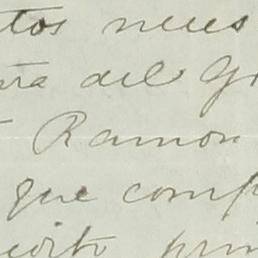 tos meses
ra del G
Ramon
que comp
cito prin